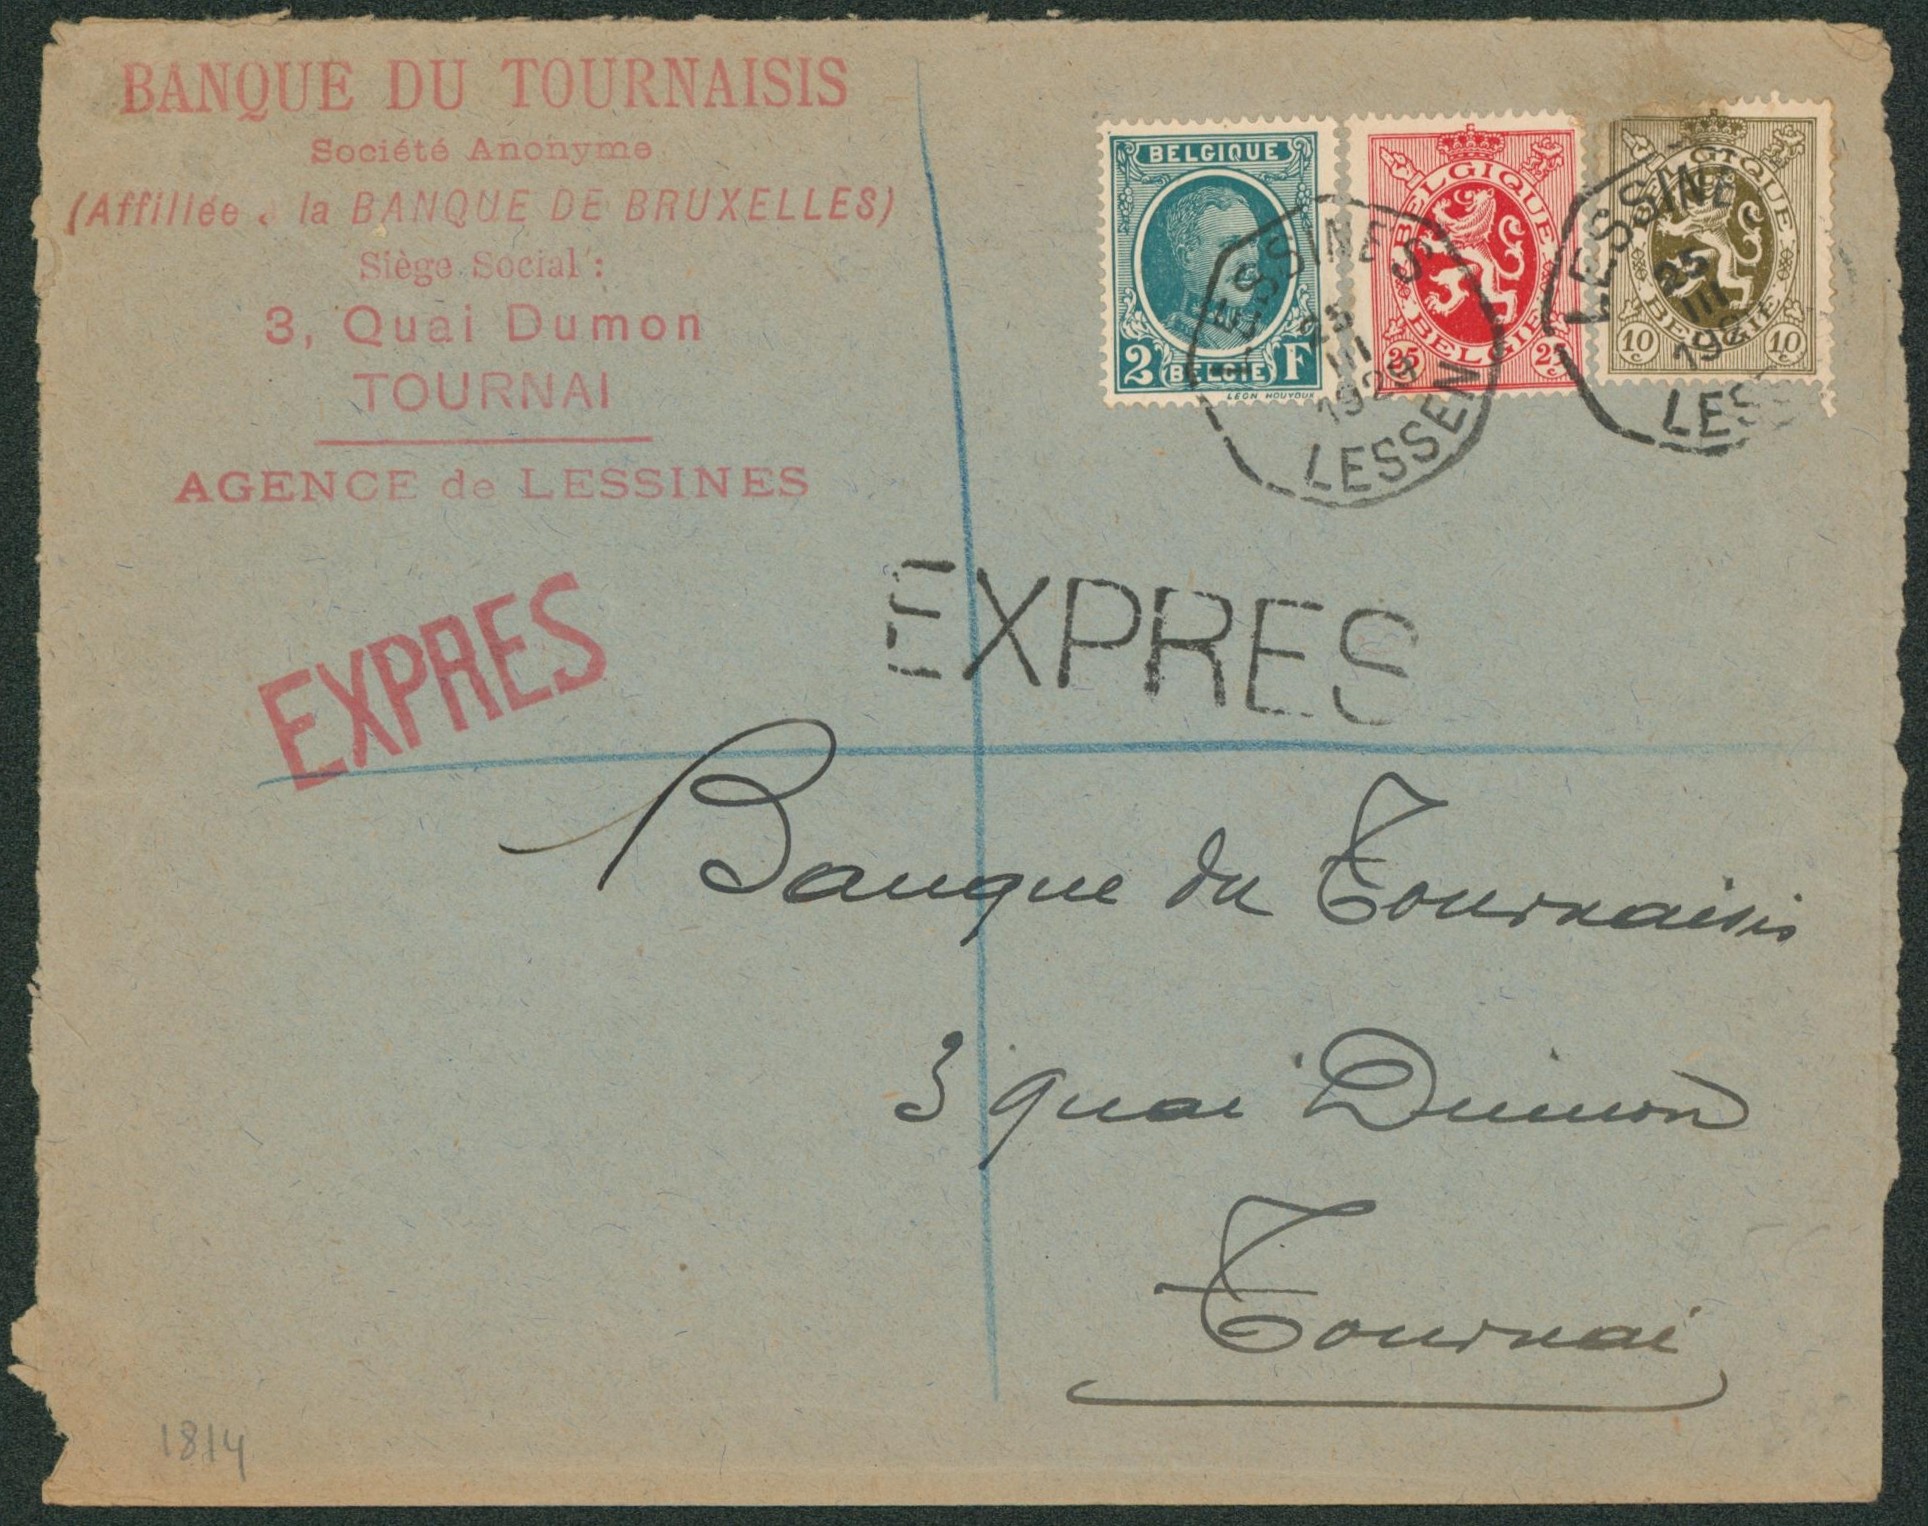 BANQUE DU TOURNAISIS
Société Anonyme
(Affillée à la BANQUE DE BRUXELLES)
Siège Social :
3, Quai Dumon
TOURNAI
AGENCE de LESSINES
BELGIQUE
2 BELGIË F
LEON HOUYOUX
BELGIQUE
25 BELGIË 25
c c
GIQUE
10 BELGIË 10
c c
LESSINES
25
III
1929
LESSEN
LESSINE
25
III
19
LESS
EXPRES
EXPRES
Banque du Tournaisis
3 quai Dumon
Tournai
1814